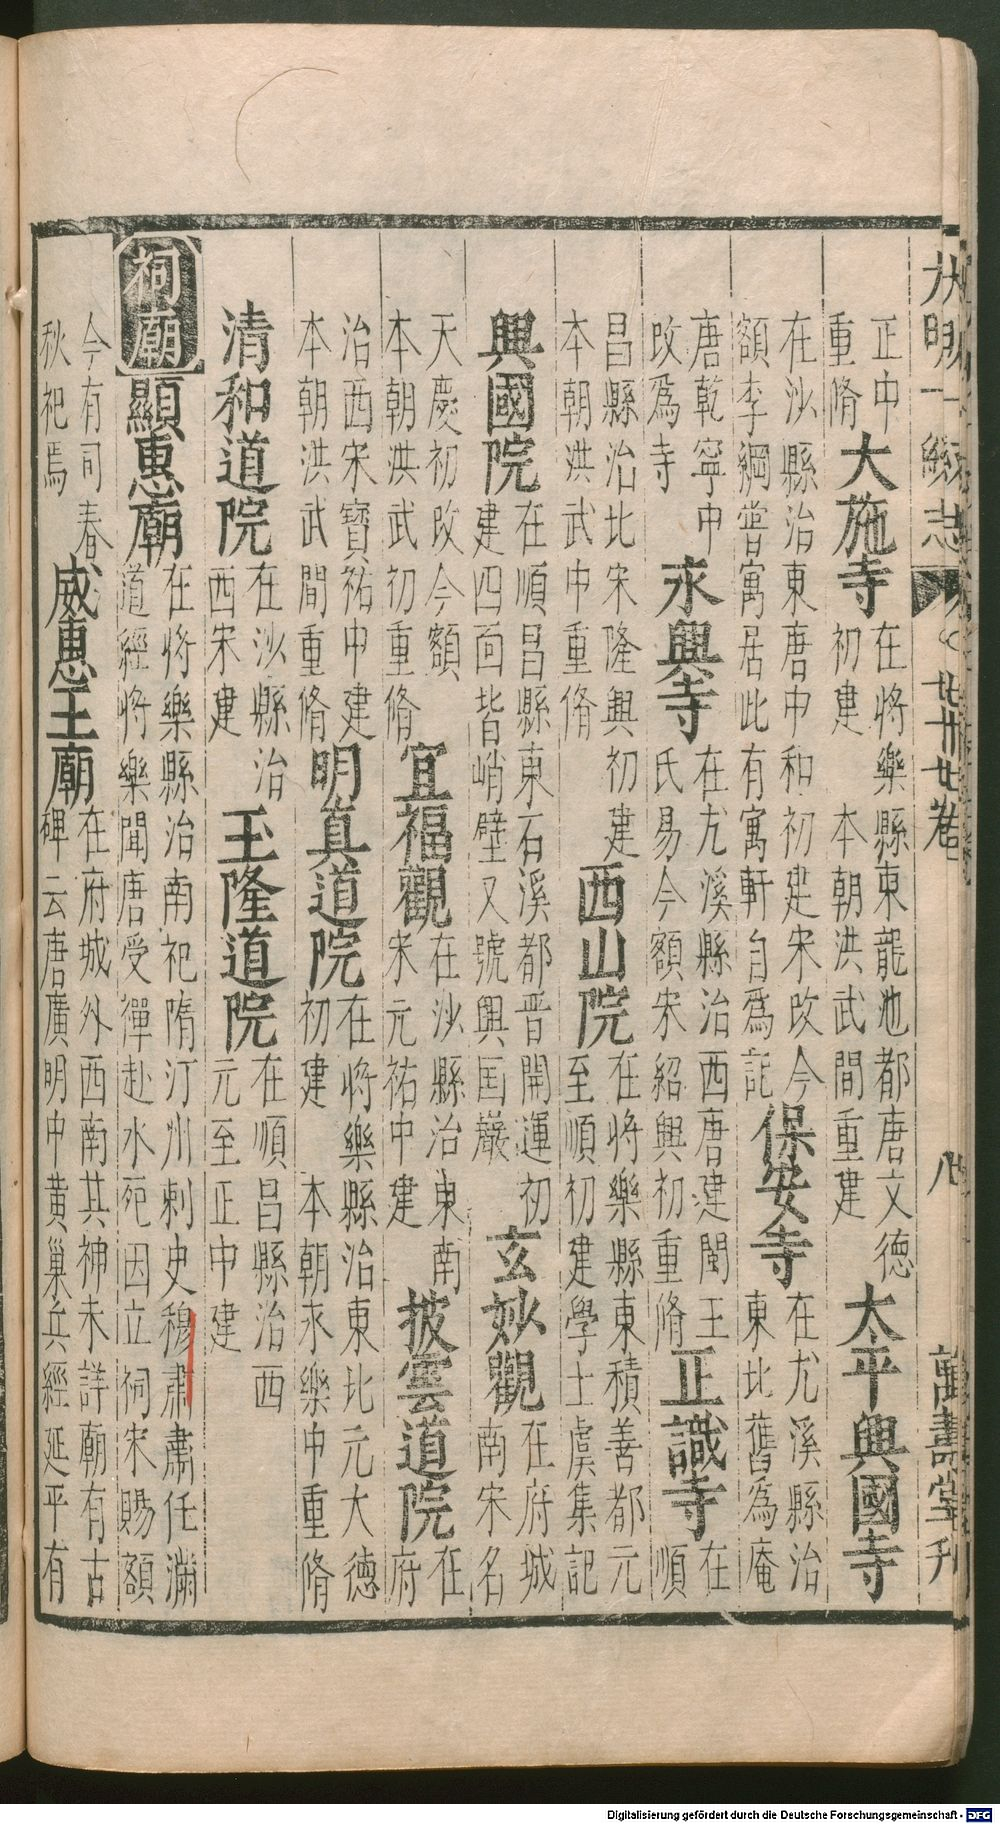 大明一統志 卷七十七 八 萬壽堂刊
正中重脩 大施寺 在將樂縣東龍池都唐文德初建 本朝洪武間重建 太平興國寺
在沙縣治東唐中和初建宋改今額李綱嘗寓居此有寓軒自爲記 保安寺 在尤溪縣治東北舊為庵
唐乾寧中改爲寺 永興寺 在尤溪縣治西唐建閩王氏易今額宋紹興初重脩 正識寺 在順
昌縣治北宋隆興初建本朝洪武中重脩 西山院 在將樂縣東積善都元至順初建學士虞集記
興國院 在順昌縣東石溪都晉開運初建四面皆峭壁又號興囯巖 玄妙觀 在府城南宋名
天慶初改今額本朝洪武初重脩 宜福觀 在沙縣治東南宋元祐中建 披雲道院 在府
治西宋寳祐中建本朝洪武間重脩 明真道院 在將樂縣治東北元大德初建 本朝永樂中重脩
清和道院 在沙縣治西宋建 玉隆道院 在順昌縣治西元至正中建
祠廟 顯惠廟 在將樂縣治南祀隋汀州刺史穆肅肅任滿道經將樂聞唐受禪赴水死因立祠宋賜額
今有司春秋祀焉 威惠王廟 在府城外西南其神未詳廟有古碑云唐廣明中黄巢兵經延平有
Digitalisierung gefördert durch die Deutsche Forschungsgemeinschaft - DFG